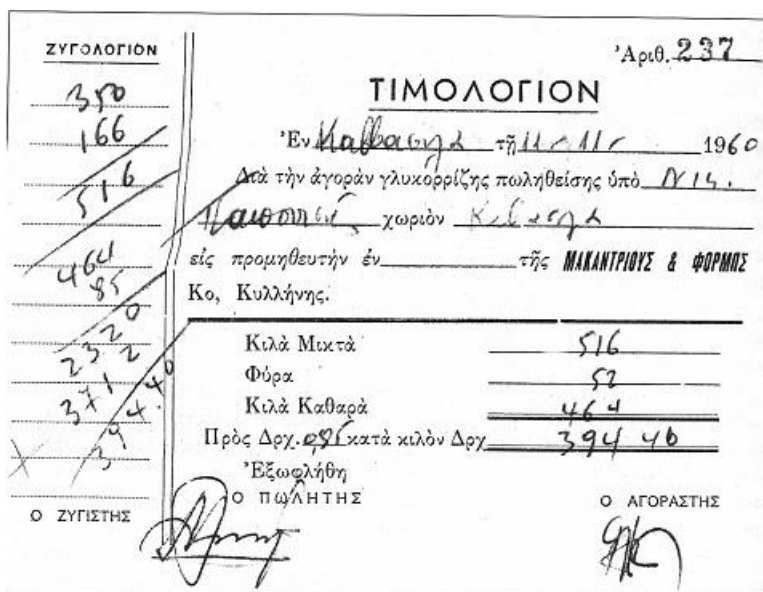 ΖΥΓΟΛΟΓΙΟΝ
350
166
516
464
85
2320
3712
394.40
Ο ΖΥΓΙΣΤΗΣ
Ἀριθ. 237
ΤΙΜΟΛΟΓΙΟΝ
Ἐν τῇ 11-11- 1960
Διὰ τὴν ἀγορὰν γλυκορρίζης πωληθείσης ὑπὸ
χωριὸν
εἰς προμηθευτήν ἐν τῆς ΜΑΚΑΝΤΡΙΟΥΣ & ΦΟΡΜΠΣ
Κο, Κυλλήνης.
Κιλὰ Μικτὰ 516
Φύρα 52
Κιλὰ Καθαρὰ 464
Πρὸς Δρχ. 0,85 κατὰ κιλὸν Δρχ 394 40
Ἐξωφλήθη
Ο ΠΩΛΗΤΗΣ
Ο ΑΓΟΡΑΣΤΗΣ